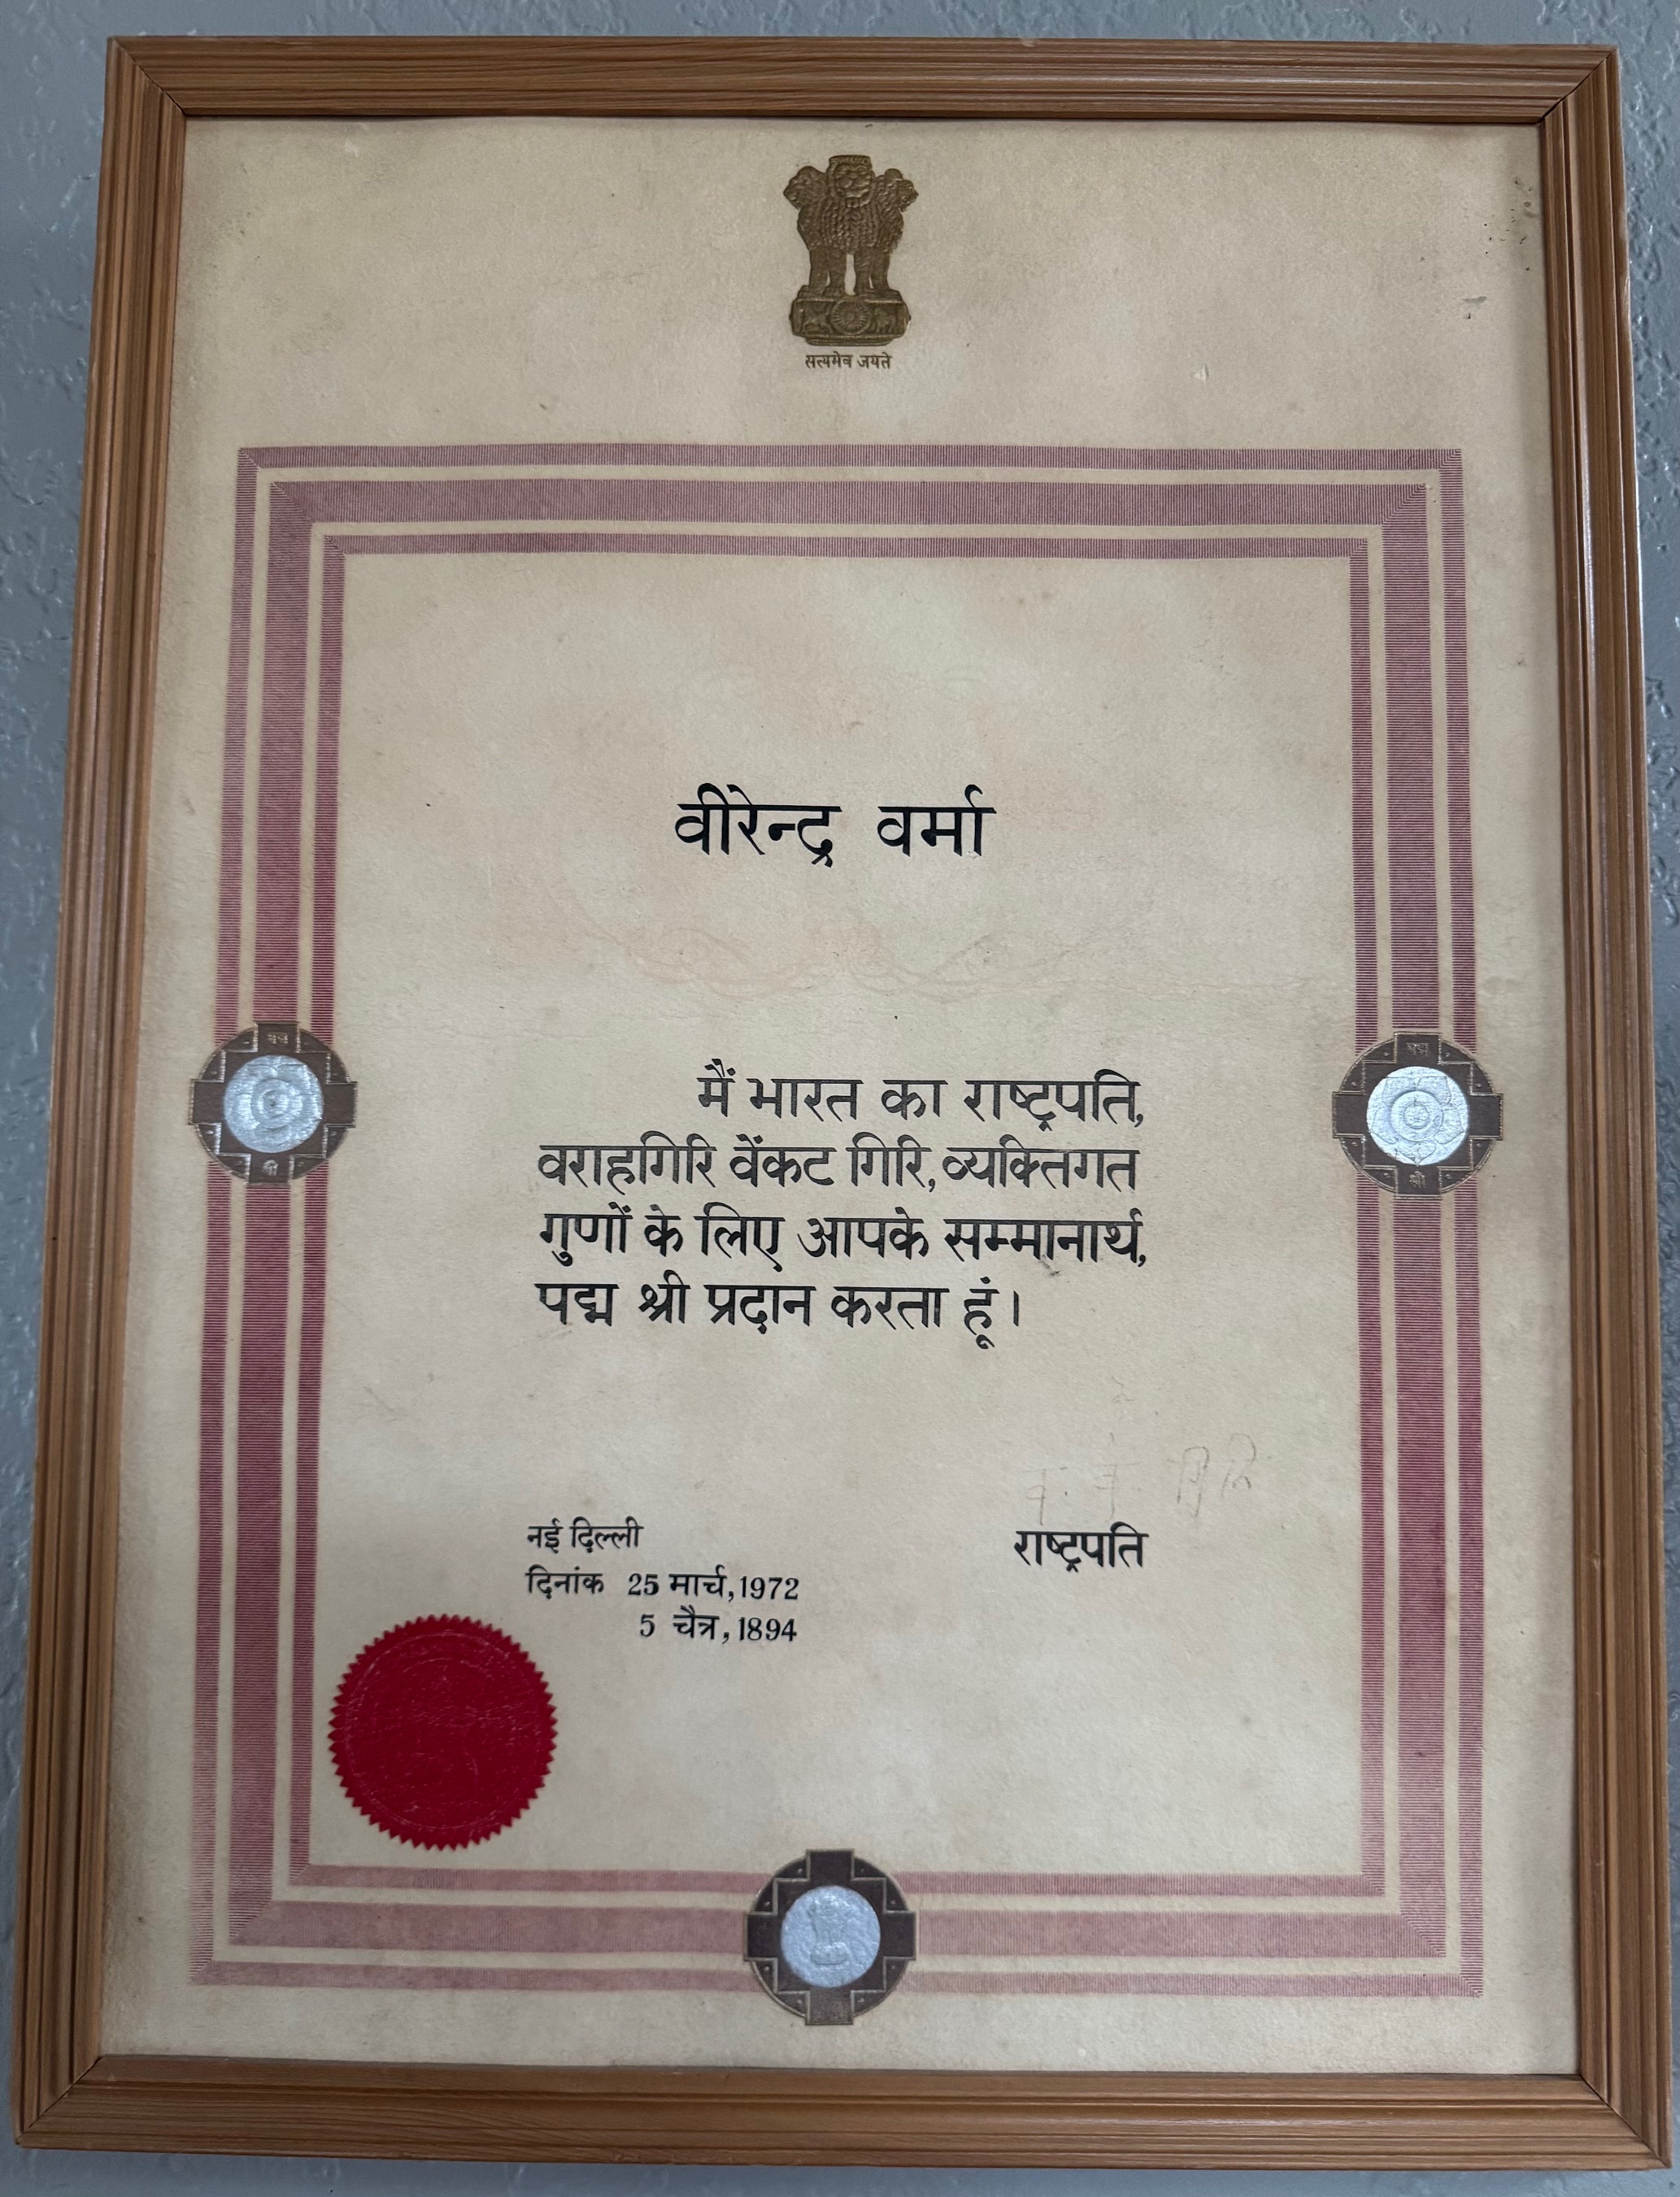 सत्यमेव जयते
वीरेन्द्र वर्मा
मैं भारत का राष्ट्रपति,
वराहगिरि वेंकट गिरि, व्यक्तिगत
गुणों के लिए आपके सम्मानार्थ,
पद्म श्री प्रदान करता हूं।
व. वे. गिरि
राष्ट्रपति
नई दिल्ली
दिनांक 25 मार्च, 1972
5 चैत्र, 1894
पद्म
श्री
पद्म
श्री